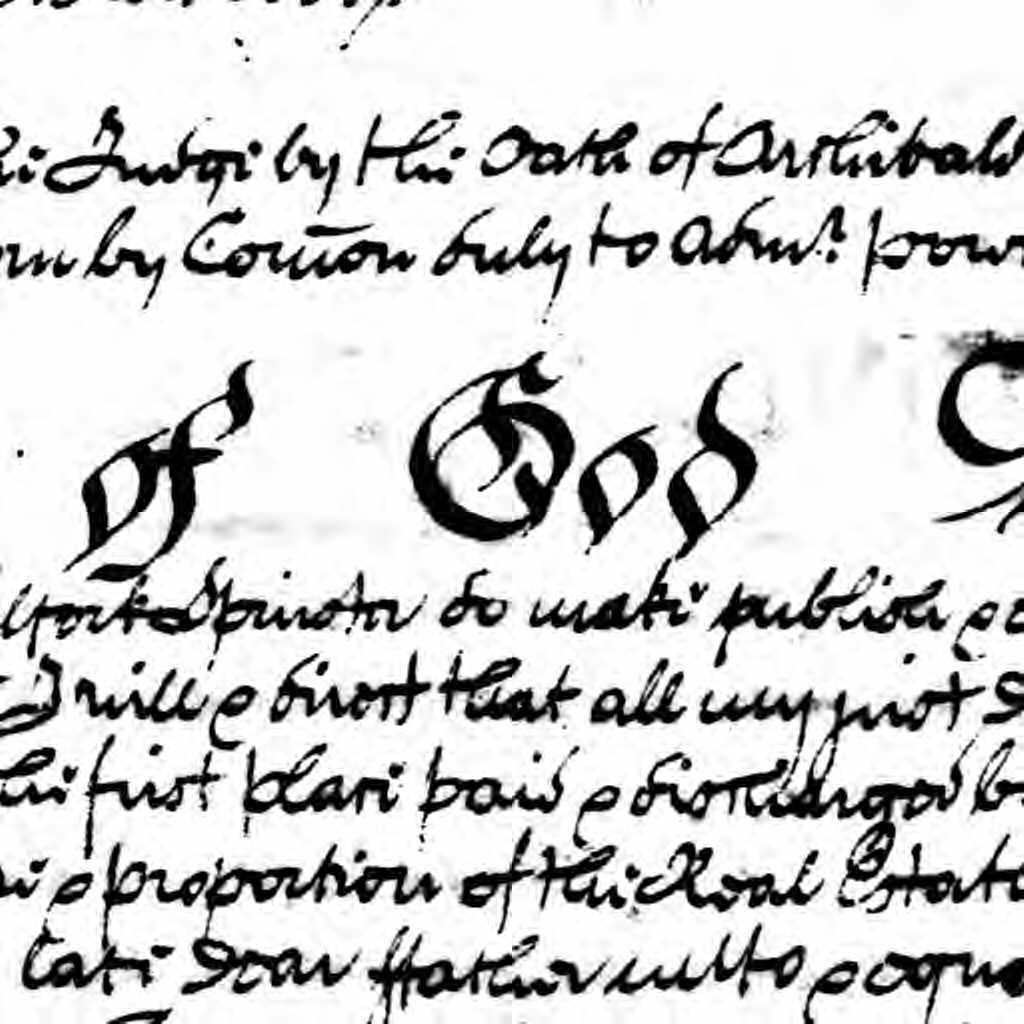 Judge by the Oath of Archibald
by Com̄on duly to Adm.r
of God
York Spinster do make publish &
I will & direct that all my just
first place paid & discharged
& proportion of the Real Estate
late Dear ffather &